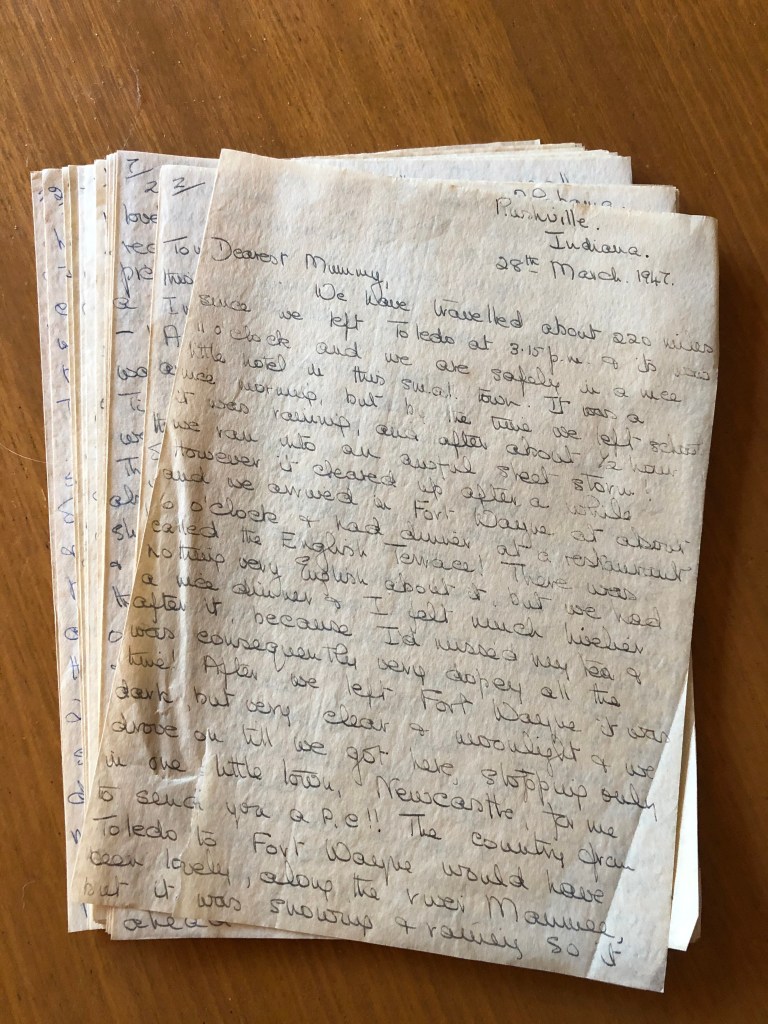 Rushville.
Indiana.
28th March. 1947.
Dearest Mummy,
We have travelled about 220 miles
since we left Toledo at 3.15 p.m. & its now
11 o'clock and we are safely in a nice
little hotel in this small town. It was a
nice morning, but by the time we left school
it was raining, and after about ½ hour
we ran into an awful sleet storm.
However it cleared up after a while
and we arrived in Fort Wayne at about
o'clock & had dinner at a restaurant
called the English Terrace! There was
nothing very English about it, but we had
a nice dinner & I felt much livelier
after it, because I'd missed my tea &
was consequently very dopey all the
time! After we left Fort Wayne it was
dark, but very clear & moonlight & we
drove on till we got here, stopping only
in one little town, Newcastle, for me
to send you a p.c!! The country from
Toledo to Fort Wayne would have
been lovely, along the river Maumee,
but it was snowing & raining so it